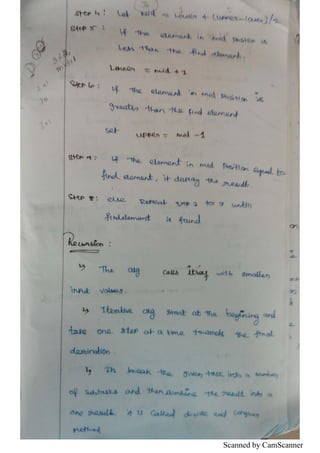 Step 4: Let Mid = Lower + (upper-lower)/2
Step 5: if the element in mid position is
Less than the find element.
Lower = mid + 1
Step 6: if the element in mid position is
greater than the find element
set
upper = mid - 1
Step 7: if the element in mid position equal to
find element, it display the result
Step 8: else Repeat step 3 to 7 until
find element is found
Recursion :
↳ The alg calls itself with smaller
input values.
↳ Iterative alg start at the beginning and
take one step at a time towards the final
destination.
↳ It break the given task into a number
of subtasks and then combine the result into a
one result. it is called divide and conquer
Method
Scanned by CamScanner